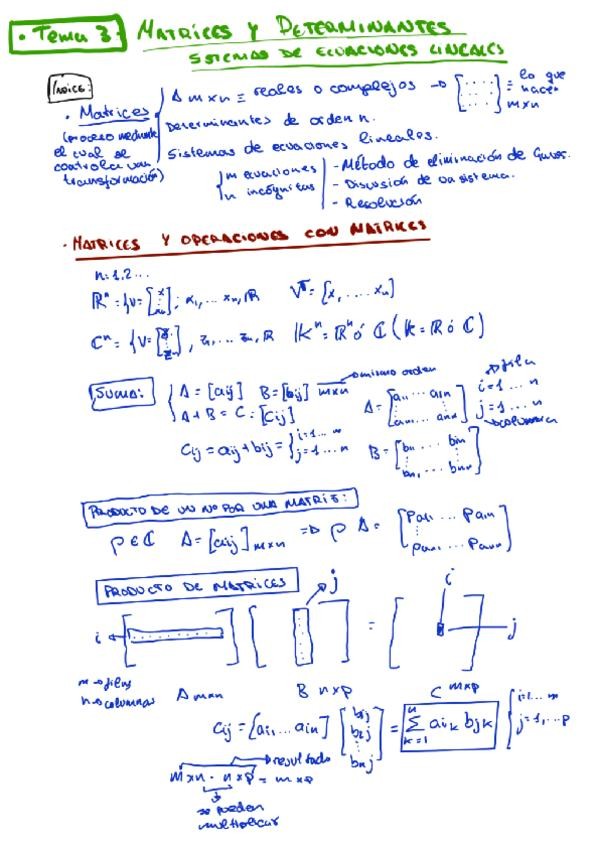 • Tema 3: MATRICES Y DETERMINANTES
SISTEMAS DE ECUACIONES LINEALES
ÍNDICE:
• Matrices
(proceso mediante
el cual se
controla una
transformación)
A m×n ≡ reales o complejos → [ ] ≡ lo que hacen m×n
Determinantes de orden n.
Sistemas de ecuaciones lineales.
m ecuaciones
n incógnitas
- Método de eliminación de Gauss.
- Discusión de un sistema.
- Resolución
• MATRICES Y OPERACIONES CON MATRICES
n: 1,2...
SUMA:
A = [aij] B = [bij] m×n → mismo orden
A + B = C = [cij]
cij = aij + bij = { i=1...m
j=1...n
→ fila
i=1...n
j=1...n
→ columna
PRODUCTO DE UN Nº POR UNA MATRIZ:
p ∈ ℂ A = [aij] m×n ⇒ p A = [pa11 ... pa1n
PRODUCTO DE MATRICES
i
j
=
i
j
m → filas
n → columnas
A m×n
B n×p
C m×p
cij = [ai1 ... ain] [b1j
b2j
⋮
bnj] = ∑ k=1 n aik bjk { i=1...m
j=1,...p
→ resultado
m×n · n×p = m×p
se pueden
multiplicar